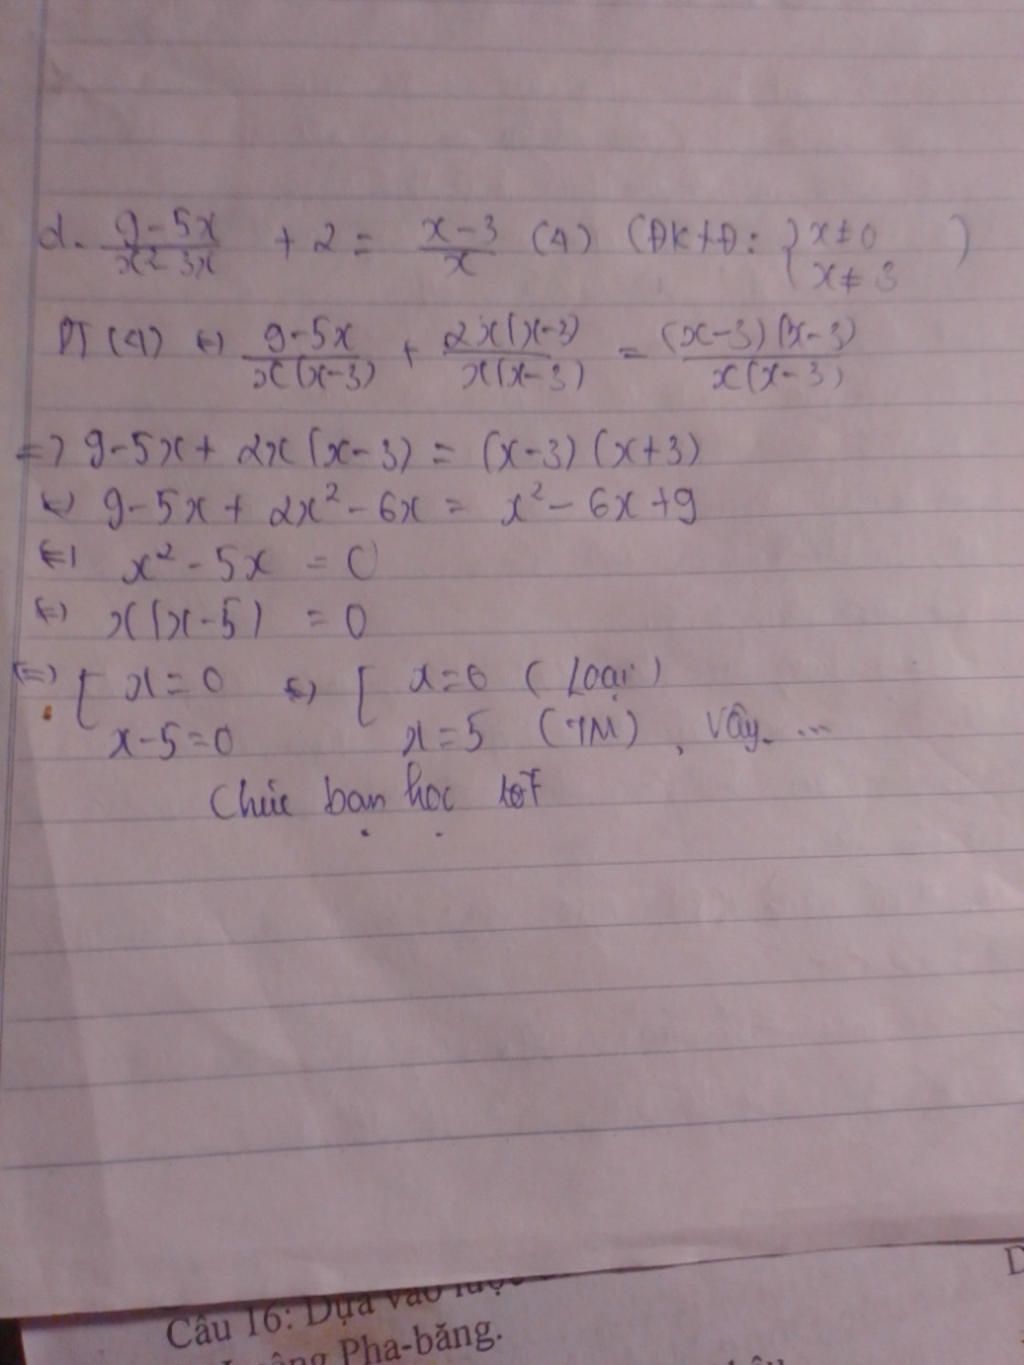 d. \frac{9-5x}{x^2-3x} + 2 = \frac{x-3}{x} (4) (ĐKXĐ: { x ≠ 0
x ≠ 3 )
PT (4) (=) \frac{9-5x}{x(x-3)} + \frac{2x(x-3)}{x(x-3)} = \frac{(x-3)(x-3)}{x(x-3)}
=> 9-5x + 2x(x-3) = (x-3)(x+3)
(=) 9-5x + 2x² - 6x = x² - 6x + 9
(=) x² - 5x = 0
(=) x(x-5) = 0
(=) [ x = 0 (=) [ x = 0 (Loại)
x-5=0 x = 5 (TM), Vậy ...
Chúc bạn học tốt
Câu 16: Dựa vào lược
Pha-băng.